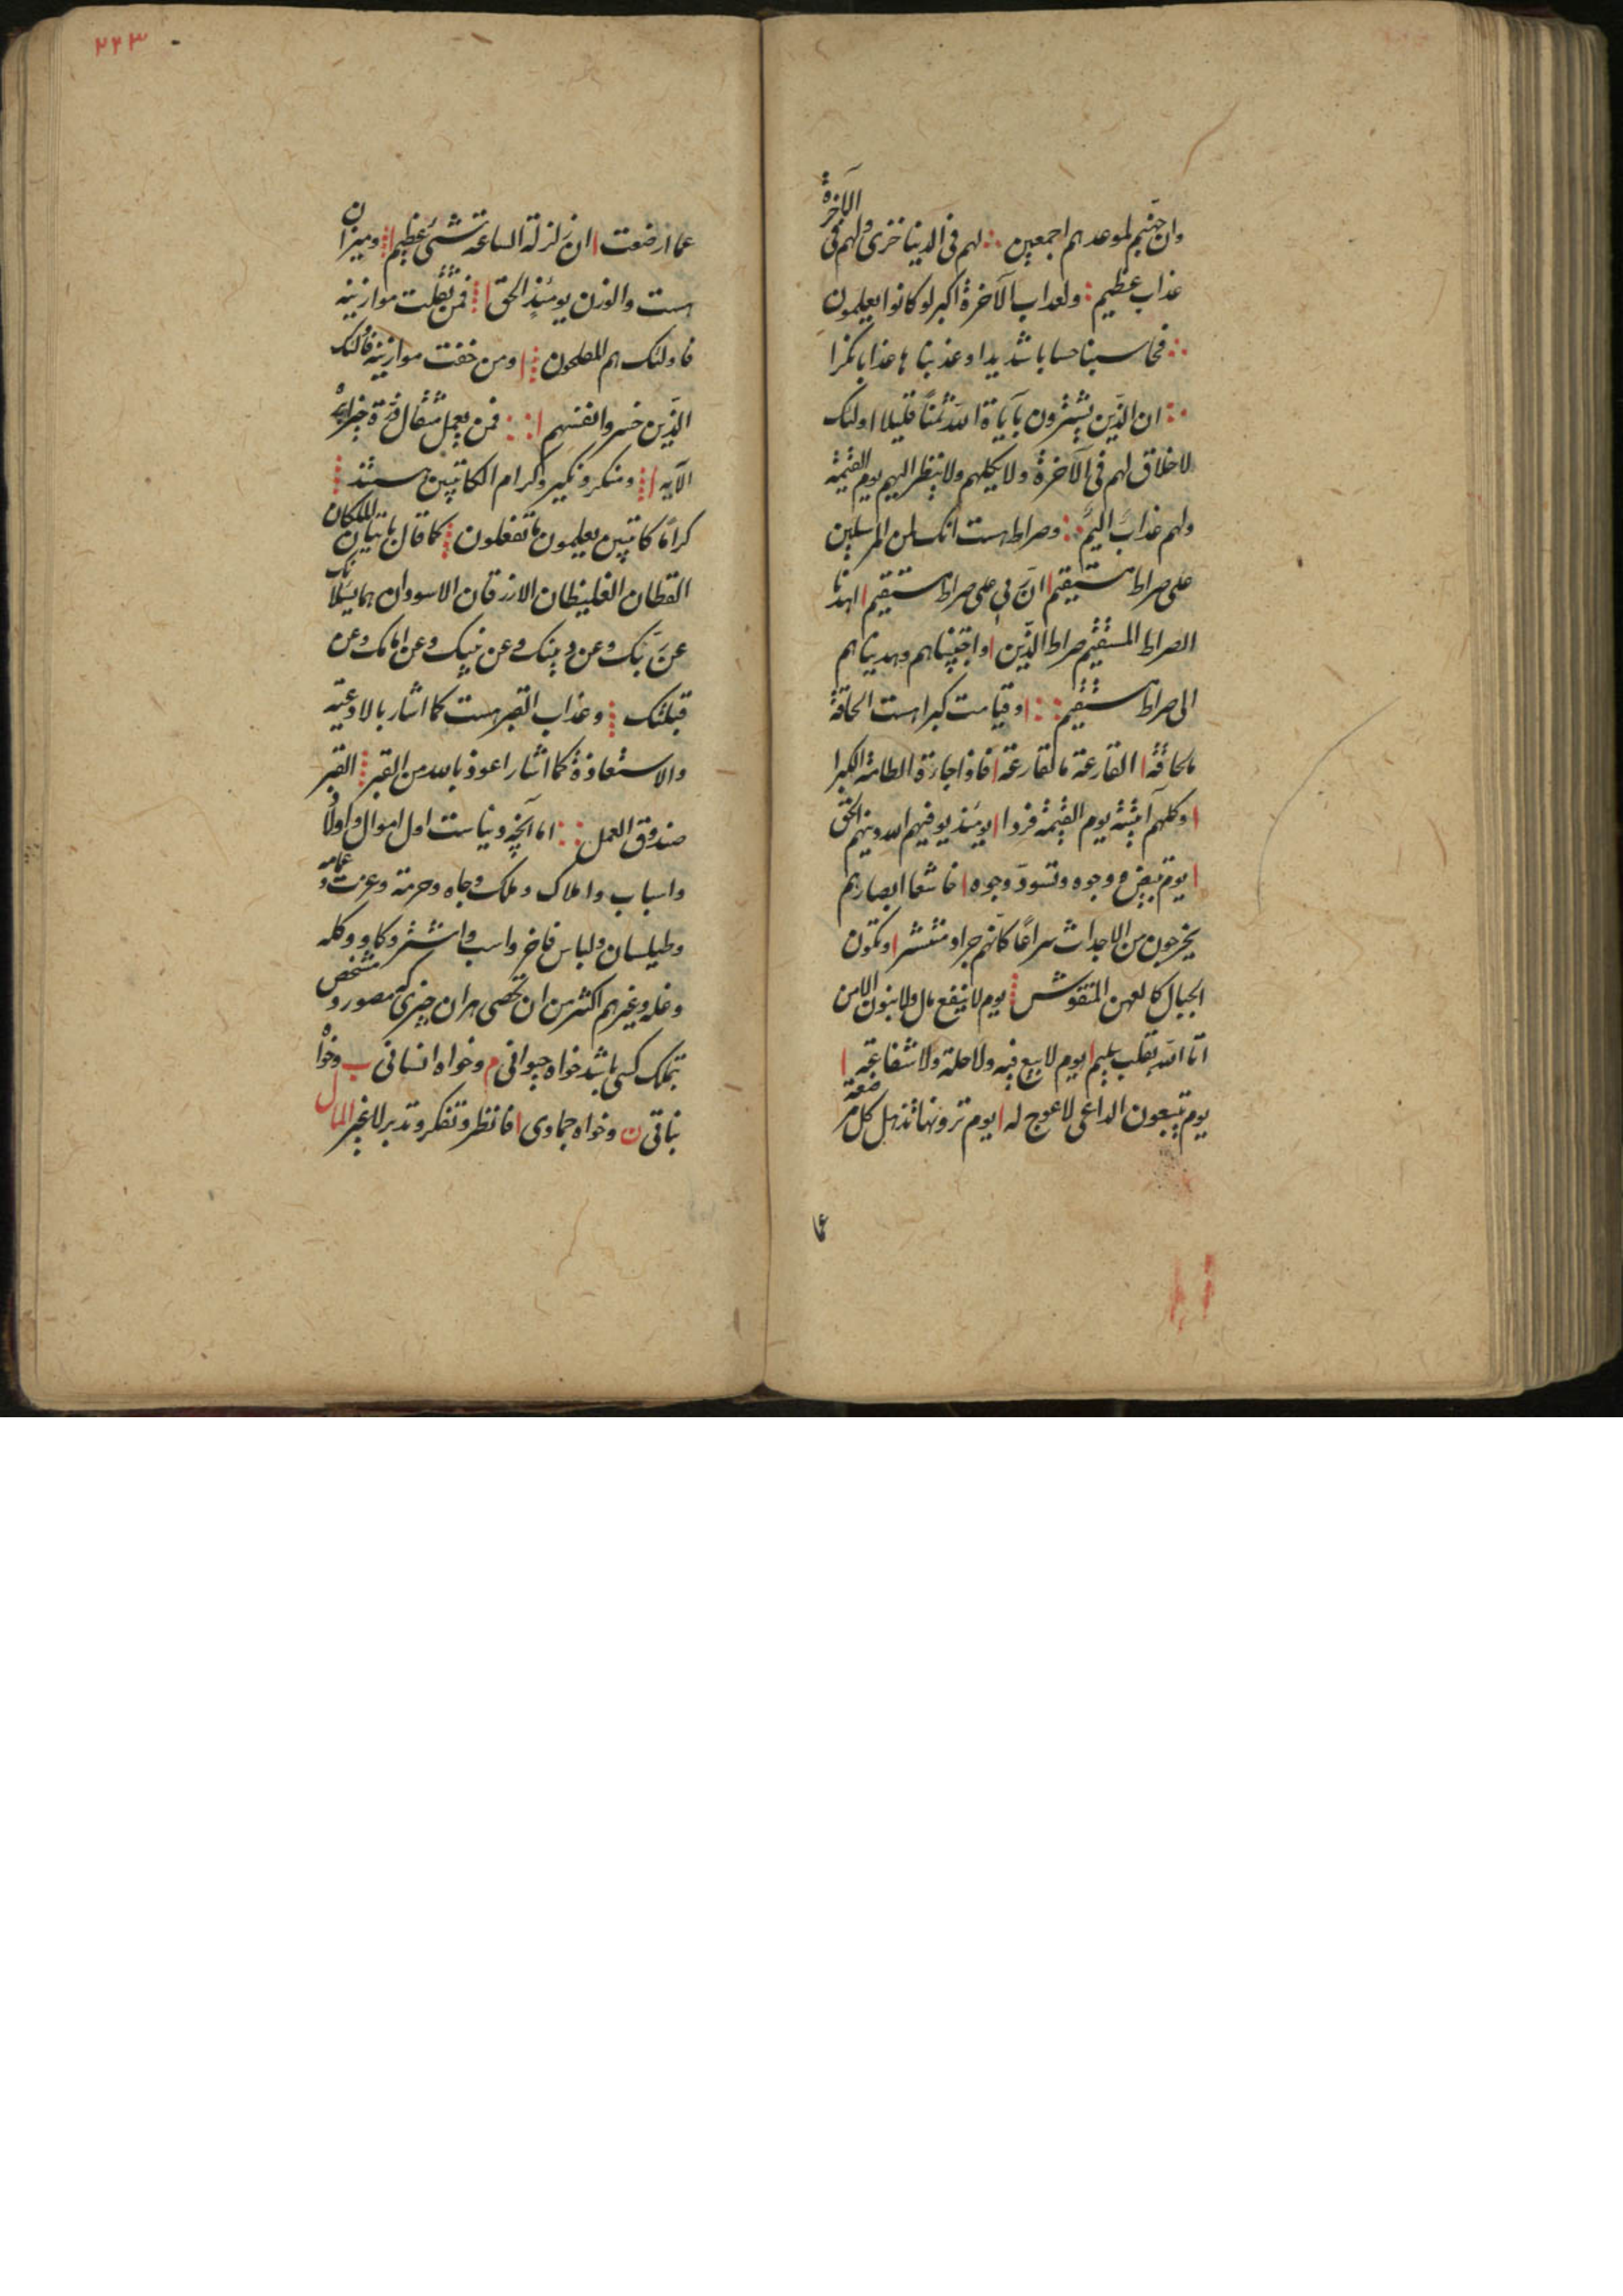 وان جهنم لموعدهم اجمعین ؞ لهم فی الدنیا خزی ولهم فی الآخرة
عذاب عظیم : ولعذاب الآخرة اکبر لو کانوا یعلمون
؞ فحاسبنا حسابا شدیدا وعذبنا ها عذابا نکرا
؞ ان الذین یشترون بآیاة الله ثمناً قلیلا اولئک
لاخلاق لهم فی الآخرة ولا یکلهم ولا ینظر الیهم یوم القیمة
ولهم عذابٌ الیمٌ ؞ وصراط هست انک لمن المرسلین
علی صراط مستقیم ا انّ ربی علی صراط مستقیم ا اهدنا
الصراط المستقیم صراط الذین ا واجتبیناهم وهدیناهم
الی صراط مستقیم :: ا وقیامت کبرا هست الحاقة
مالحاقة ا القارعة مالقارعة ا فاذا جاءة الطامة الکبرا
ا وکلهم آتیه یوم القیمة فردا ا یومئذ یوفیهم الله دینهم الحق
ا یوم تبیض وجوه وتسودّ وجوه ا خاشعا ابصارهم
یخرجون من الاجداث سراعًا کانّهم جراد منتشر ا وتکون
الجبال کالعهن المنقوش ؞ یوم لا ینفع مال ولا بنون الا من
اتا الله بقلب سلیم ا یوم لا بیع فیه ولا خلة ولا شفاعة ا
یوم یتبعون الداعی لاعوج له ا یوم ترونها تذهل کل مرضعة
عما
۲۲۳
عما ارضعت ا ان زلزلة الساعة شیءٌ عظیم ا ؞ ومیزان
هست والوزن یومئذٍ الحق ا ؞ فمن ثقلت موازینه
فاولئک هم المفلحون ؞ ا ومن خفت موازینه فاولئک
الذین خسروا انفسهم ا :: فمن یعمل مثقال ذرة خیرا یره
الآیه ا ؞ ومنکر ونکیر وکرام الکاتبین هستند ؞
کرامًا کاتبین یعلمون ما تفعلون ؞ کما قال یاتیان الملکان
القطان الغلیظان الازرقان الاسودان هما یسئلانک
عن ربّک وعن دینک وعن نبیک وعن امامک وعن
قبلتک ؞ وعذاب القبر هست کما اشار بالادعیة
والاستعاذة کما اشار اعوذ بالله من القبر ؞ القبر
صندوق العمل :: اما آنچه دنیاست اول اموال و اولاد
واسباب واملاک وملک وجاه وحرمة وعزت وعمامه
وطیلسان ولباس فاخر واسب واشتر وکاو وکله
وغله وغیرهم اکثر من ان تحصی هر ان چیزی که مصور و مشخص
بتملک کسی باشد خواه حیوانی م وخواه انسانی ب وخواه
نباتی ن وخواه جمادی ا فانظر وتفکر وتدبر لا غیر المال